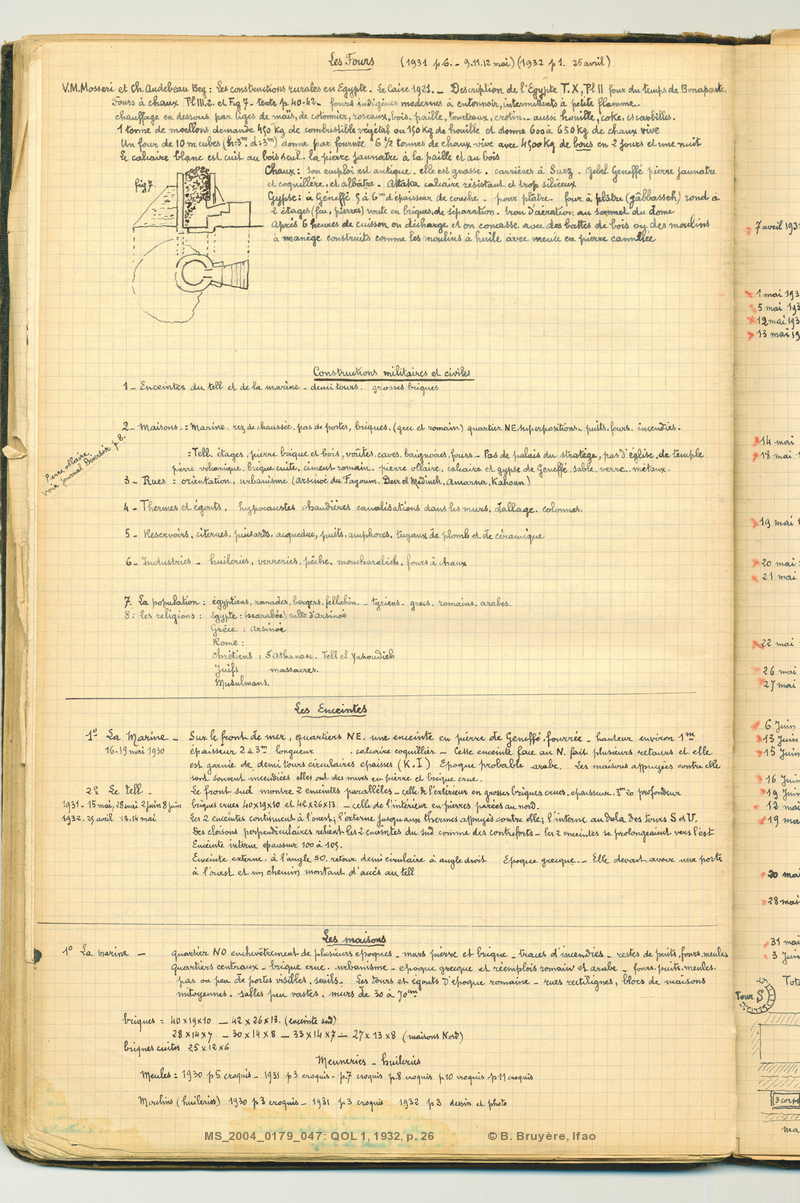 Les Fours (1931 p.6. - 9.11.12 mai) (1932 p1. 25 avril)
V.M. Mosseri et Ch. Audebeau Bey : Les constructions rurales en Egypte. Le Caire 1921. - Description de l'Egypte T.X, Pl II four du temps de Bonaparte.
Fours à chaux Pl III.2. et Fig 7 - texte p.40-42 - fours indigènes modernes à entonnoir, intermittents à petite flamme.
chauffage en dessous par tiges de maïs, de cotonnier, roseaux, bois, paille, tourteaux, - aussi houille, coke, escarbilles.
1 tonne de moellons demande 450 kg de combustible végétal ou 150 kg de houille et donne 600 à 650 kg de chaux vive
Un four de 10 m cubes (h:3m. d:3m) donne par fournée 6 1/2 tonnes de chaux vive avec 4500 kg de bois en 2 jours et une nuit
le calcaire blanc est cuit au bois seul. la pierre jaunatre à la paille et au bois
fig 7.
Chaux : son emploi est antique. elle est grasse. carrières à Suez. Jebel Geneffé pierre jaunatre
et coquillère, et albâtre. Attaka calcaire résistant et trop siliceux
Gypse : à Geneffé 5 à 6m d'épaisseur de couche - pour plâtre. four à plâtre (gâbbasseh) rond à
2 étages (feu, pierres) voute en briques, de séparation. trou d'aération au sommet du dome
Après 6 heures de cuisson on décharge et on concasse avec des battes de bois ou des moulins
à manège construits comme les moulins à huile avec meule en pierre cannelée
Constructions militaires et civiles
1 - Enceintes du tell et de la marine - demi tours. grosses briques
2 - Maisons. : Marine. rez de chaussée, pas de portes, briques, (grec et romain) quartier NE superpositions - puits. fours. incendies.
Pierre ollaire.
voir journal Daressy p.8.
: Tell. étages, pierre brique et bois, voûtes, caves, baignoires, fours - Pas de palais du stratège, pas d'église, de temple
pierre volcanique. brique cuite, ciment romain. pierre ollaire, calcaire et gypse de Geneffé. sable. verre. métaux.
3 - Rues : orientation, urbanisme (Arsinoé du Fayoum. Deir el Médineh, Amarna, Kahoun)
4 - Thermes et égouts. hypocaustes chaudières canalisations dans les murs, dallage. colonnes.
5 - Reservoirs, citernes, puisards, acqueduc, puits, amphores, tuyaux de plomb et de céramique
6 - Industries - huileries, verreries, pêche. moucharabieh, fours à chaux
7. La population : égyptiens, nomades, bergers, fellahin. - tyriens. grecs, romains, arabes.
8 : Les religions : Egypte : (scarabée) culte d'Arsinoé
Grèce : Arsinoé
Rome :
Chrétiens : S Athanase. Tell el Yahoudieh
Juifs massacres.
Musulmans.
Les Enceintes
1° La Marine - Sur le front de mer, quartiers NE. une enceinte en pierre de Geneffé, fourrée - hauteur environ 1m
16-19 mai 1930 épaisseur 2 à 3m longueur . calcaire coquillier - Cette enceinte face au N. fait plusieurs retours et elle
est garnie de demi tours circulaires épaisses (K.I) Epoque probable arabe. Les maisons appuyées contre elle
sont souvent incendiées elles ont des murs en pierre et brique crue.
2° Le tell. Le front sud montre 2 enceintes parallèles - celle de l'extérieur en grosses briques crues. epaisseur. 3m20 profondeur
1931 - 15 mai, 28 mai 2 juin 8 juin briques crues 40x19x10 et 42x26x13 - celle de l'intérieur en pierres, parées au nord.
1932. 25 avril 13.14 mai Les 2 enceintes continuent à l'ouest ; l'externe jusqu'aux thermes appuyés contre elle ; l'interne au dela des tours S et U.
Des cloisons perpendiculaires relient les 2 enceintes du sud comme des contreforts - les 2 enceintes se prolongeaient vers l'est
Enceinte interne épaisseur 100 à 105.
Enceinte externe. à l'angle SO. retour demi circulaire à angle droit Epoque grecque. - Elle devait avoir une porte
à l'ouest et un chemin montant d'accès au tell
Les maisons
1° La marine - quartier NO enchevêtrement de plusieurs epoques - murs pierre et brique - traces d'incendies - restes de puits, fours, meules
quartiers centraux - brique crue. urbanisme - epoque grecque et réemplois romain et arabe - fours. puits. meules.
pas ou peu de portes visibles, seuils. Les tours et egouts d'epoque romaine - rues rectilignes, blocs de maisons
mitoyennes. salles peu vastes, murs de 30 à 70cm
briques : 40x19x10 - 42x26x13. (enceinte sud)
28x14x7 - 30x14x8 - 33x14x7 - 27x13x8 (maisons Nord)
briques cuites 25x12x6
Meuneries - huileries
Meules : 1930 p5 croquis - 1931 p3 croquis - p.7 croquis p.8 croquis p10 croquis p11 croquis
Moulins (huileries) 1930 p3 croquis - 1931 p3 croquis 1932 p3 dessin et photo
MS_2004_0179_047: QOL 1, 1932, p. 26 © B. Bruyère, Ifao
7 avril 1931
1 mai 193
5 mai 193
12 mai 193
13 mai 19
14 mai
18 mai
19 mai
20 mai
21 mai
22 mai
26 mai
27 mai
6 Juin
13 Juin
15 Juin
16 Juin
19 Juin
12 mai
19 mai
20 mai
28 mai
31 mai
3 Juin
Tour S
3 corps